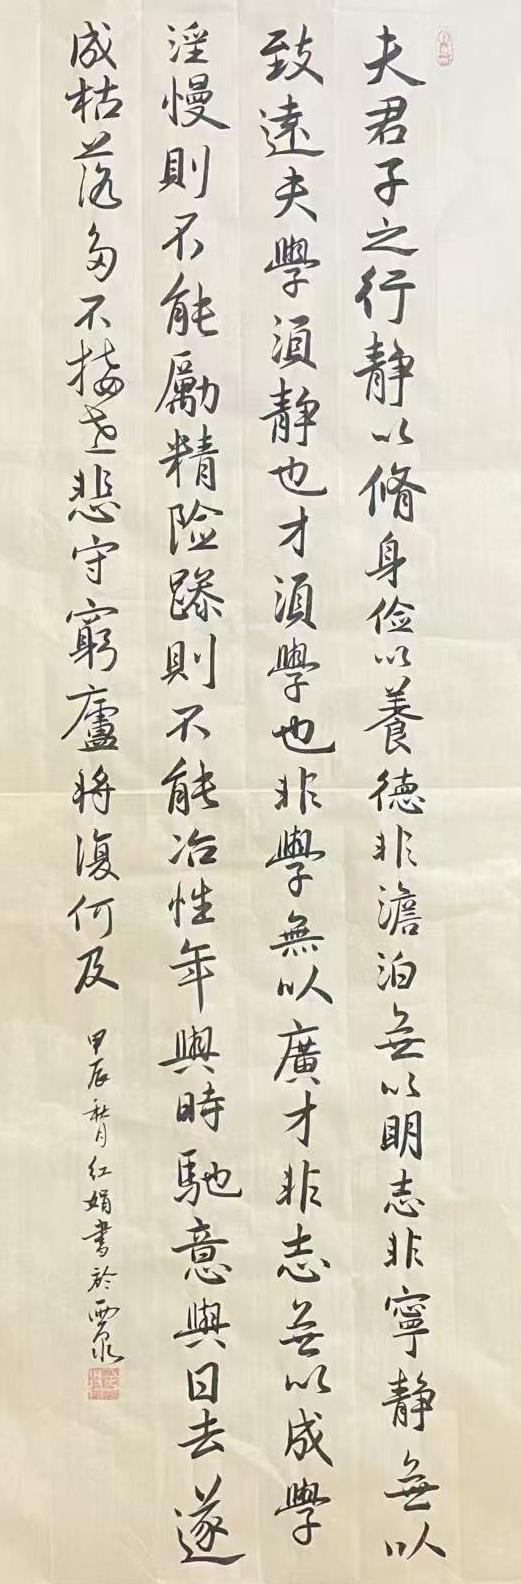 夫君子之行静以脩身俭以養德非澹泊無以明志非寧静無以
致遠夫學須静也才須學也非學無以廣才非志無以成學
淫慢則不能勵精险躁則不能冶性年與時馳意與日去遂
成枯落多不接世悲守窮廬将復何及
甲辰秋月红娟書於